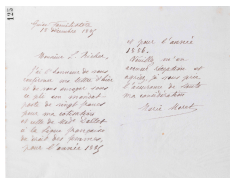 125
Guise Familistère
28 décembre 1895
Monsieur C. Richet
J'ai l'honneur de vous
confirmer ma lettre d'hier
et de vous envoyer sous
ce pli un mandat
poste de vingt francs
pour ma cotisation
et celle de Mme Dallet
à la ligue française
du droit des femmes,
pour l'année 1895
et pour l'année
1896.
Veuillez m'en
accuser réception et
agréer, je vous prie
l'assurance de toute
ma considération
Marie Moret